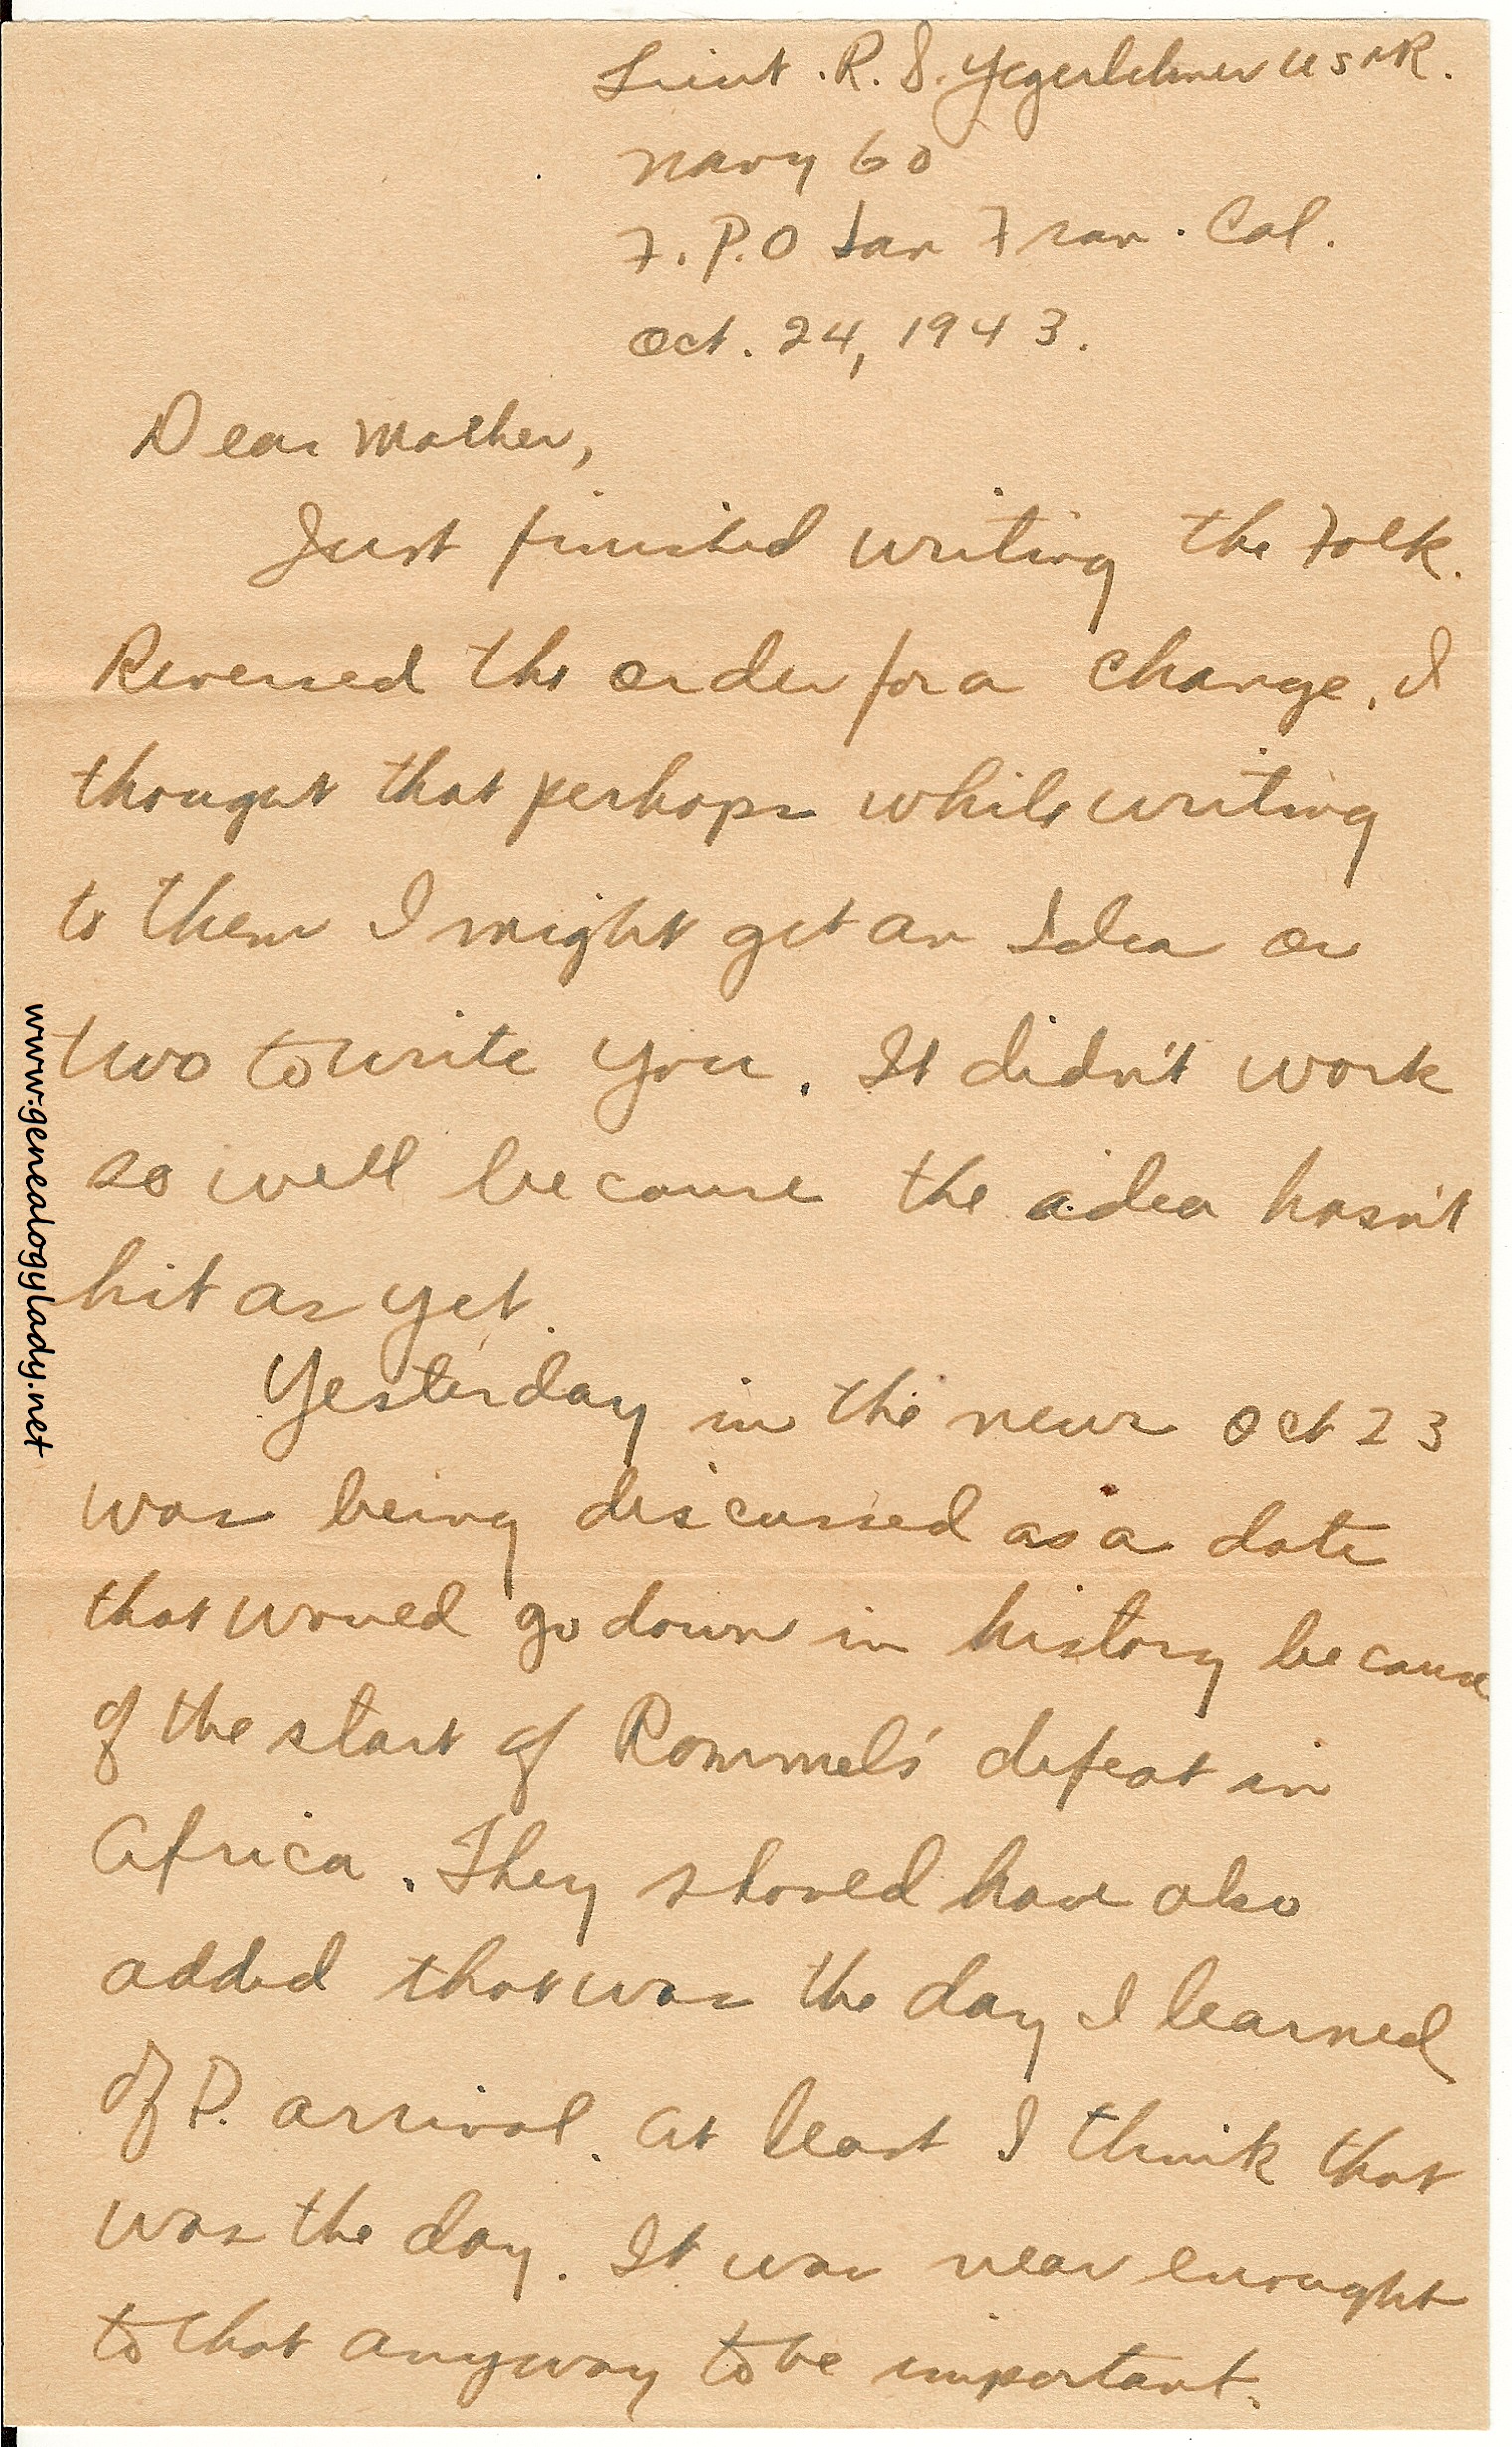 Lieut. R. S. Yegerlehner USNR.
Navy 60
F.P.O San Fran. Cal.
Oct. 24, 1943.
Dear Mother,
Just finished writing the Folk.
Reversed the order for a change. I
thought that perhaps while writing
to them I might get an Idea or
two to write you. It didn't work
so well because the idea hasn't
hit as yet.
Yesterday in the news Oct 23
was being discussed as a date
that would go down in history because
of the start of Rommels' defeat in
Africa. They should have also
added that was the day I learned
of P. arrival. At least I think that
was the day. It was near enought
to that anyway to be important.
www.genealogylady.net